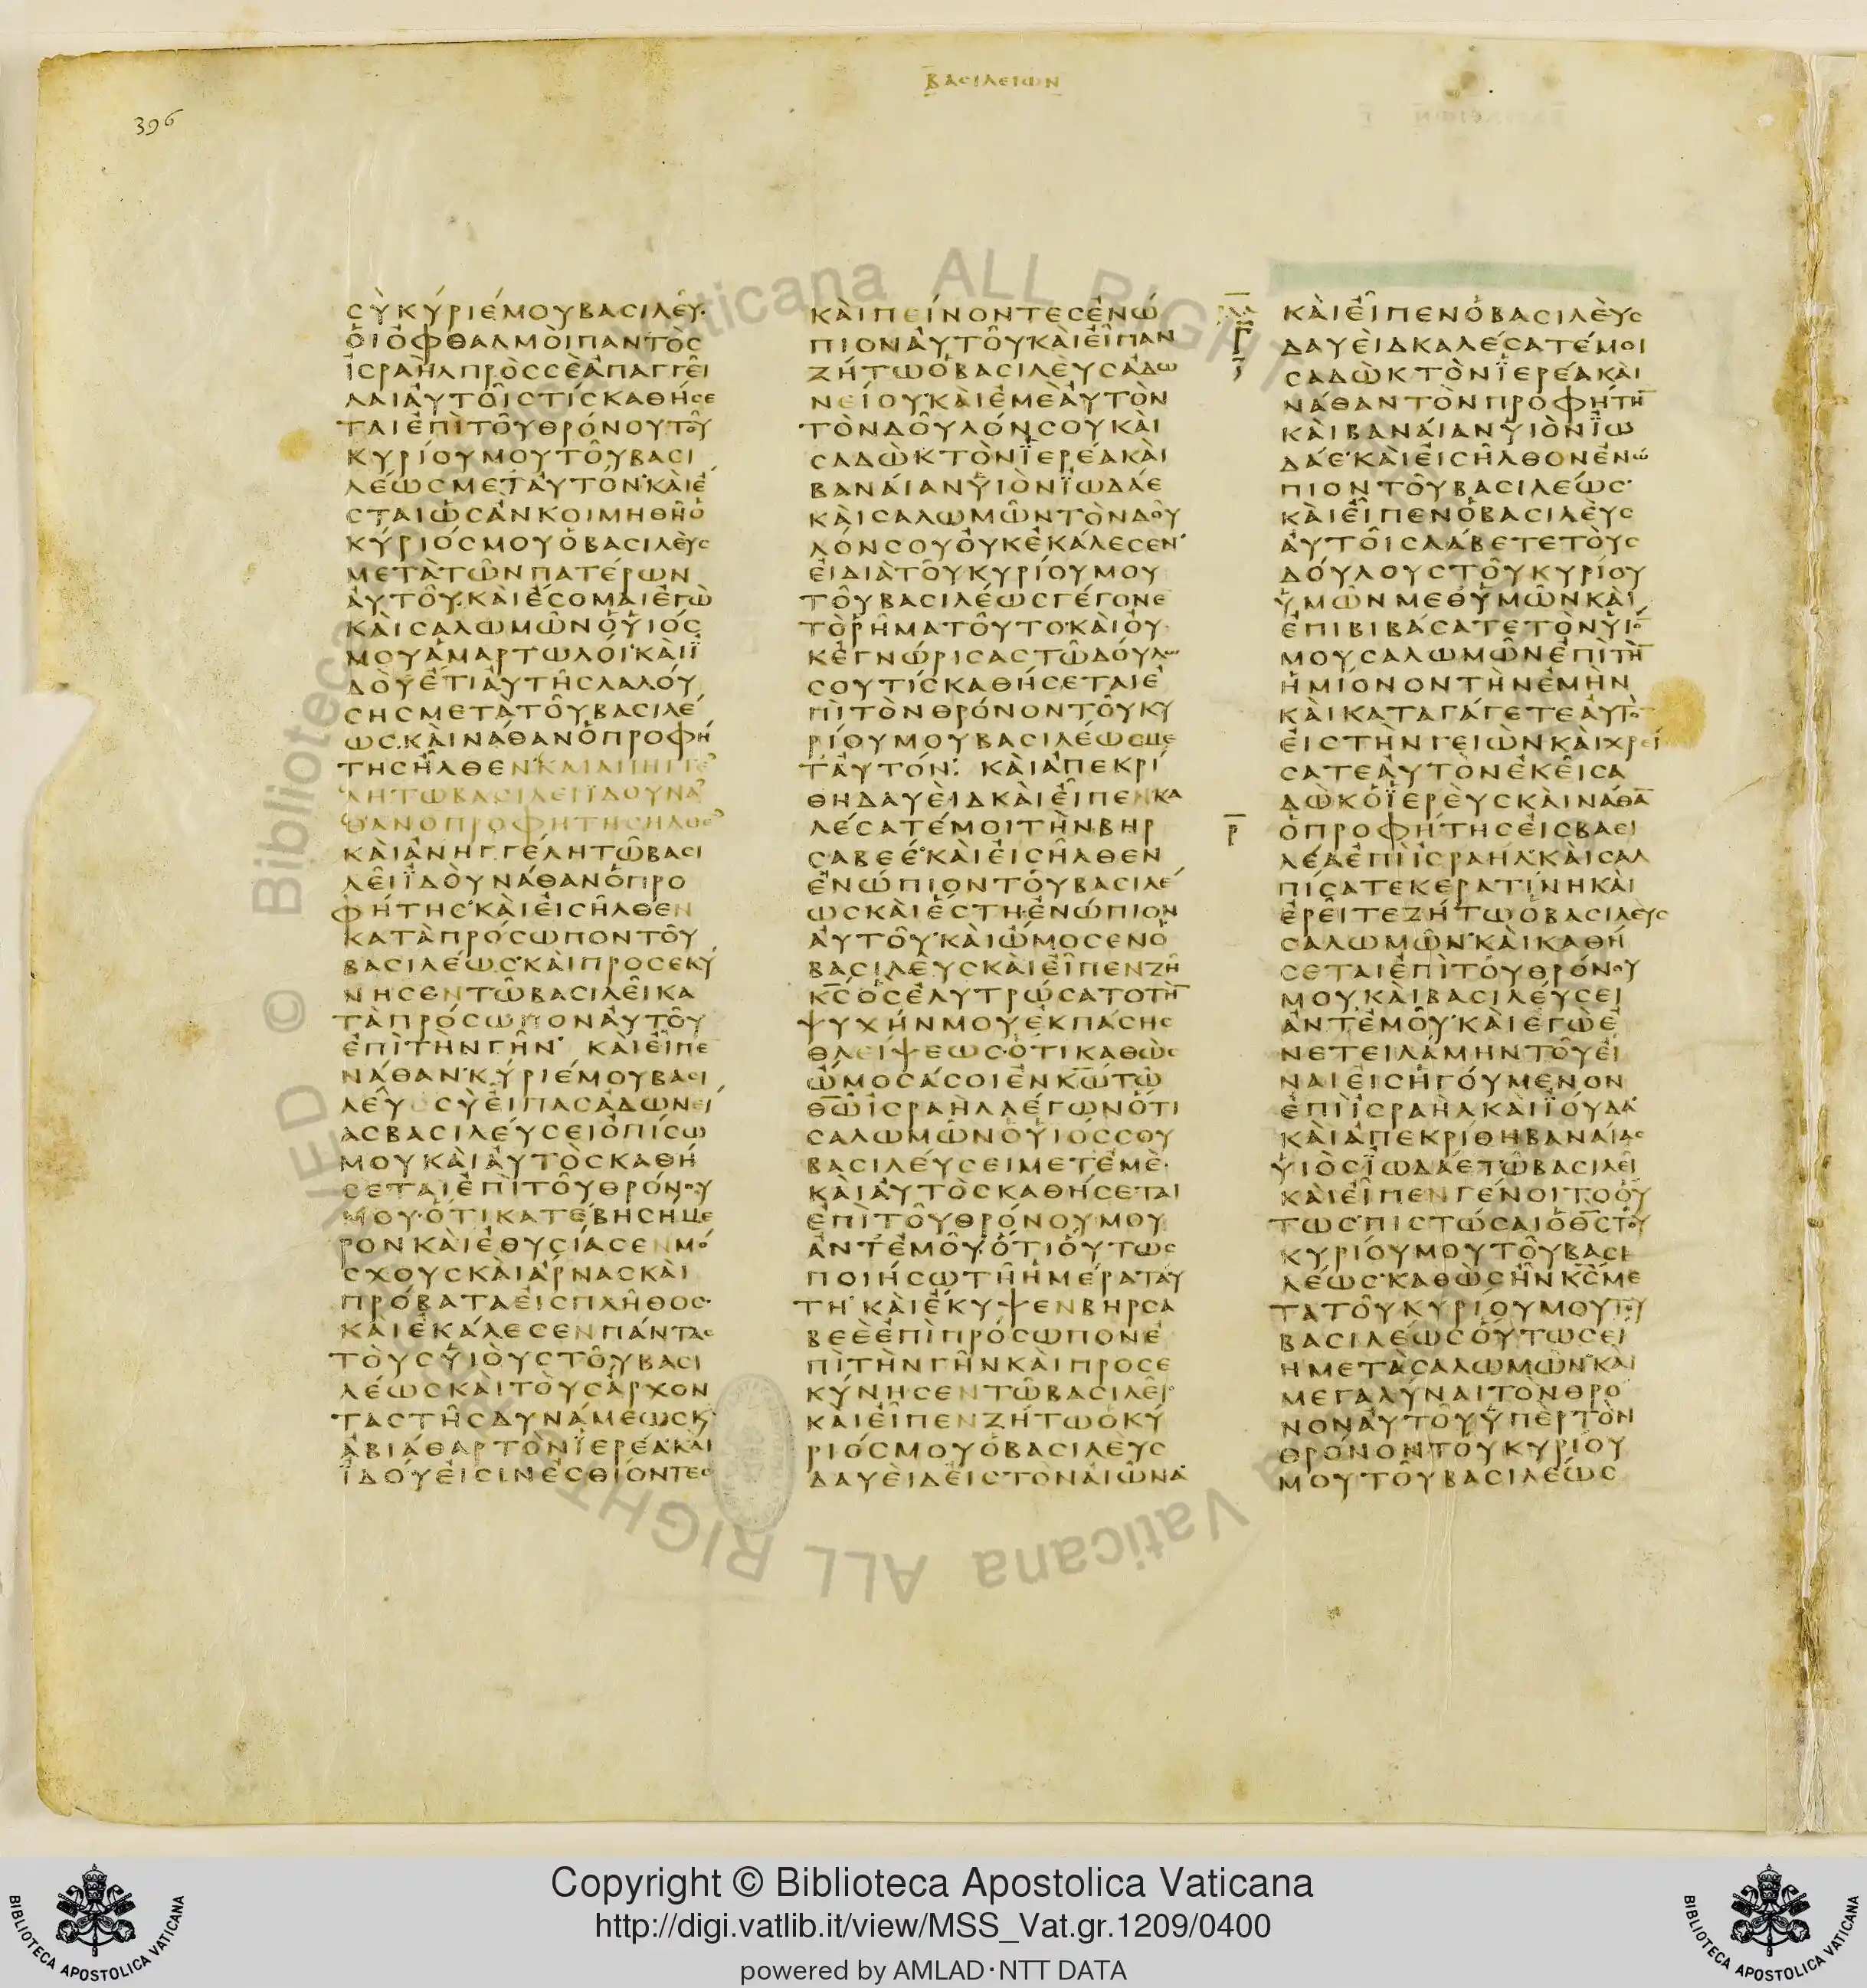 ΒΑΣΙΛΕΙΩΝ
396
ϹῪΚΎΡΙΈΜΟΥΒΑϹΙΛΕΥ͂·
ὉΙὈΦΘΑΛΜῸΙΠΑΝΤῸϹ
ἸϹΡΑῊΛΠΡῸϹϹῈἈΠΑΓΓΕ͂Ι
ΛΑΙἈΥΤΟ͂ΙϹΤΊϹΚΑΘΉϹΕ
ΤΑΙἘΠῚΤΟ͂ΥΘΡΌΝΟΥΤΟ͂Υ
ΚΥΡΊΟΥΜΟΥΤΟ͂ΥΒΑϹΙ
ΛΈΩϹΜΕΤΆΥΤΟΝ·ΚᾺΙΈ
ϹΤΑΙὩϹἊΝΚΟΙΜΗΘΗ͂Ὁ
ΚΎΡΙΌϹΜΟΥὉΒΑϹΙΛῈΥϹ
ΜΕΤᾺΤΩ͂ΝΠΑΤΈΡΩΝ
ἈΥΤΟ͂Υ·ΚᾺΙΈϹΟΜΑΙἘΓῺ
ΚᾺΙϹΑΛΩΜΩ͂ΝὉΥἹΌϹ
ΜΟΥἉΜΑΡΤΩΛΌΙ·ΚᾺΙΪ
ΔῸΥἜΤΙἈΥΤΗ͂ϹΛΑΛΟΎ
ϹΗϹΜΕΤᾺΤΟ͂ΥΒΑϹΙΛΈ
ΩϹ·ΚᾺΙΝΆΘΑΝὉΠΡΟΦΉ
ΤΗϹἮΛΘΕΝ·ΚΑΙΑΝΗΓΓΕ
ΛΗΤΩΒΑϹΙΛΕΙΪΔΟΥΝΑ
ΘΑΝΟΠΡΟΦΗΤΗϹΗΛΘΕ
ΚᾺΙἈΝΗΓΓΈΛΗΤΩ͂ΒΑϹΙ
ΛΕ͂ΙΪΔῸΥΝΆΘΑΝὉΠΡΟ
ΦΉΤΗϹ·ΚᾺΙἘΙϹΗ͂ΛΘΕΝ
ΚΑΤᾺΠΡΌϹΩΠΟΝΤΟ͂Υ
ΒΑϹΙΛΈΩϹ·ΚᾺΙΠΡΟϹΕΚΥ
ΝΗϹΕΝΤΩ͂ΒΑϹΙΛΕ͂ΙΚΑ
ΤᾺΠΡΌϹΩΠΟΝἈΥΤΟ͂Υ
ἘΠῚΤῊΝΓΗ͂Ν· ΚᾺΙΕἾΠΕ
ΝΆΘΑΝ·ΚΎΡΙΈΜΟΥΒΑϹΙ
ΛΕΥ͂ϹῪἘΙΠΑϹἈΔΩΝΕΙ
ΑϹΒΑϹΙΛΈΥϹΕΙὈΠΊϹΩ
ΜΟΥΚᾺΙἈΥΤῸϹΚΑΘΉ
ϹΕΤΑΙἘΠῚΤΟ͂ΥΘΡΌΝΟΥ
ΜΟΥ·ὍΤΙΚΑΤΈΒΗϹΗΜΕ
ΡΟΝΚᾺΙἘΘΥϹΊΑϹΕΝΜΌ
ϹΧΟΥϹΚᾺΙἌΡΝΑϹΚᾺΙ
ΠΡΌΒΑΤΑἘΙϹΠΛΗ͂ΘΟϹ·
ΚᾺΙἘΚΆΛΕϹΕΝΠΆΝΤΑϹ
ΤῸΥϹΥἹῸΥϹΤΟ͂ΥΒΑϹΙ
ΛΈΩϹΚᾺΙΤῸΥϹἌΡΧΟΝ
ΤΑϹΤΗ͂ϹΔΥΝΆΜΕΩϹΚ
ἈΒΙΆΘΑΡΤῸΝΪΕΡΈΑ·ΚΑΙ
ΪΔΟῪἘΙϹΙΝἘϹΘΊΟΝΤΕϹ
ΚᾺΙΠΕΊΝΟΝΤΕϹἘΝΏ
ΠΙΟΝἈΥΤΟ͂Υ·ΚᾺΙΕἾΠΑΝ
ΖΉΤΩὉΒΑϹΙΛῈΥϹἈΔΩ
ΝΕΊΟΥ·ΚᾺΙἘΜῈἈΥΤῸΝ
ΤῸΝΔΟ͂ΥΛΌΝϹΟΥΚᾺΙ
ϹΑΔῺΚΤῸΝΪΕΡΈΑΚᾺΙ
ΒΑΝΆΙΑΝΥἹῸΝΪΩΔΆΕ
ΚᾺΙϹΑΛΩΜΩ͂ΝΤῸΝΔΟΥ
ΛΌΝϹΟΥὈΥΚἘΚΆΛΕϹΕΝ·
ἘΙΔΙᾺΤΟ͂ΥΚΥΡΊΟΥΜΟΥ
ΤΟ͂ΥΒΑϹΙΛΈΩϹΓΈΓΟΝΕ
ΤῸΡΗ͂ΜΑΤΟΥΤΟ·ΚᾺΙὈΥ
ΚἘΓΝΏΡΙϹΑϹΤΩ͂ΔΟΎΛΩ
ϹΟΥΤΊϹΚΑΘΉϹΕΤΑΙἘ
ΠῚΤῸΝΘΡΌΝΟΝΤΟ͂ΥΚΥ
ΡΊΟΥΜΟΥΒΑϹΙΛΈΩϹΜΕ
ΤἈΥΤΌΝ· ΚᾺΙἈΠΕΚΡΊ
ΘΗΔΑΥῈΙΔΚᾺΙΕἾΠΕΝΚΑ
ΛΈϹΑΤΈΜΟΙΤῊΝΒΗΡ
ϹΑΒΕΈ·ΚᾺΙἘΙϹΗ͂ΛΘΕΝ
ἘΝΏΠΙΟΝΤΟ͂ΥΒΑϹΙΛΈ
ΩϹΚᾺΙἜϹΤΗ·ἘΝΏΠΙΟΝ
ἈΥΤΟ͂Υ·ΚᾺΙὬΜΟϹΕΝὉ
ΒΑϹΙΛῈΥϹΚᾺΙΕἾΠΕΝΖΗ͂
Κ̅Ϲ̅ὉϹἘΛΥΤΡΏϹΑΤΟΤΗ̅
ΨΥΧΉΝΜΟΥἘΚΠΆϹΗϹ
ΘΛΕΊΨΕΩϹ·ὍΤΙΚΑΘῺϹ
ὬΜΟϹΆϹΟΙἘΝΚ̅Ω̅ΤΩ͂
Θ̅Ω̅ἸϹΡΑῊΛΛΈΓΩΝὍΤΙ
ϹΑΛΩΜΩ͂ΝὉΥἹΌϹϹΟΥ
ΒΑϹΙΛΈΥϹΕΙΜΕΤἘΜῈ·
ΚᾺΙἈΥΤῸϹΚΑΘΉϹΕΤΑΙ
ἘΠῚΤΟ͂ΥΘΡΌΝΟΥΜΟΥ
ἈΝΤἘΜΟ͂Υ·ὍΤΙὍΥΤΩϹ
ΠΟΙΉϹΩΤΗ͂ἩΜΈΡΑΤΑΥ
ΤΗ· ΚᾺΙἜΚΥΨΕΝΒΗΡϹΑ
ΒΕῈἘΠῚΠΡΌϹΩΠΟΝἘ
ΠῚΤῊΝΓΗ͂ΝΚᾺΙΠΡΟϹΕ
ΚΎΝΗϹΕΝΤΩ͂ΒΑϹΙΛΕ͂Ι·
ΚᾺΙΕἾΠΕΝΖΉΤΩὉΚΎ
ΡΙΌϹΜΟΥὉΒΑϹΙΛῈΥϹ
ΔΑΥῈΙΔἘΙϹΤῸΝΑἸΩ͂ΝΑ
Γ̅
ΚᾺΙΕἾΠΕΝὉΒΑϹΙΛῈΥϹ
ΔΑΥῈΙΔΚΑΛΈϹΑΤΈΜΟΙ
ϹΑΔῺΚΤῸΝΪΕΡΈΑΚᾺΙ
ΝΆΘΑΝΤῸΝΠΡΟΦΉΤΗ̅
ΚᾺΙΒΑΝΆΙΑΝΥἹῸΝΪΩ
ΔΆΕ·ΚᾺΙἘΙϹΗ͂ΛΘΟΝἘΝΏ
ΠΙΟΝΤΟ͂ΥΒΑϹΙΛΈΩϹ·
ΚᾺΙΕἾΠΕΝὉΒΑϹΙΛῈΥϹ
ἈΥΤΟ͂ΙϹΛΆΒΕΤΕΤῸΥϹ
ΔΟΎΛΟΥϹΤΟ͂ΥΚΥΡΊΟΥ
ὙΜΩ͂ΝΜΕΘὙΜΩ͂ΝΚᾺΙ
ἘΠΙΒΙΒΆϹΑΤΕΤῸΝΥἹΟ̅
ΜΟΥϹΑΛΩΜΩ͂ΝἘΠῚΤΗ̅
ἩΜΊΟΝΟΝΤῊΝἘΜῊΝ
ΚᾺΙΚΑΤΑΓΆΓΕΤΕἈΥΤΟ̅
ἘΙϹΤῊΝΓΕΙῺΝΚᾺΙΧΡΕΙ
ϹΑΤΕἈΥΤῸΝἘΚΕ͂ΙϹΑ
ΔῺΚὉΪΕΡῈΥϹΚᾺΙΝΆΘΑ̅
Ρ̅
ὉΠΡΟΦΉΤΗϹἘΙϹΒΑϹΙ
ΛΈΑἘΠῚἸϹΡΑΗΛ·ΚᾺΙϹΑΛ
ΠΊϹΑΤΕΚΕΡΑΤΊΝΗΚᾺΙ
ἘΡΕ͂ΙΤΕΖΉΤΩὉΒΑϹΙΛῈΥϹ
ϹΑΛΩΜΩ͂Ν·ΚᾺΙΚΑΘΉ
ϹΕΤΑΙἘΠῚΤΟ͂ΥΘΡΌΝΟΥ
ΜΟΥ·ΚᾺΙΒΑϹΙΛΈΥϹΕΙ
ἈΝΤἘΜΟ͂Υ·ΚᾺΙἘΓῺἘ
ΝΕΤΕΙΛΆΜΗΝΤΟ͂ΥΕἾ
ΝΑΙἘΙϹἩΓΟΎΜΕΝΟΝ
ἘΠῚἸϹΡΑῊΛΚᾺΙΪΟΎΔΑ
ΚᾺΙἈΠΕΚΡΊΘΗΒΑΝΆΙΑϹ
ΥἹῸϹΪΩΔΆΕΤΩ͂ΒΑϹΙΛΕ͂Ι
ΚᾺΙΕἾΠΕΝΓΈΝΟΙΤΟὍΥ
ΤΩϹ·ΠΙϹΤΏϹΑΙὉΘ̅Ϲ̅ΤΟΥ
ΚΥΡΊΟΥΜΟΥΤΟ͂ΥΒΑϹΙ
ΛΈΩϹ·ΚΑΘῺϹΗ͂ΝΚ̅Ϲ̅ΜΕ
ΤΑΤΟ͂ΥΚΥΡΊΟΥΜΟΥΤΟΥ
ΒΑϹΙΛΈΩϹὍΥΤΩϹΕΙ
ΗΜΕΤᾺϹΑΛΩΜΩ͂Ν·ΚΑΙ
ΜΕΓΑΛΎΝΑΙΤΟΝΘΡΟ
ΝΟΝἈΥΤΟ͂ΥὙΠῈΡΤῸΝ
ΘΡΌΝΟΝΤΟΥΚΥΡΊΟΥ
ΜΟΥΤΟ͂ΥΒΑϹΙΛΈΩϹ
Copyright © Biblioteca Apostolica Vaticana
http://digi.vatlib.it/view/MSS_Vat.gr.1209/0400
powered by AMLAD·NTT DATA
BIBLIOTECA APOSTOLICA VATICANA
BIBLIOTECA APOSTOLICA VATICANA